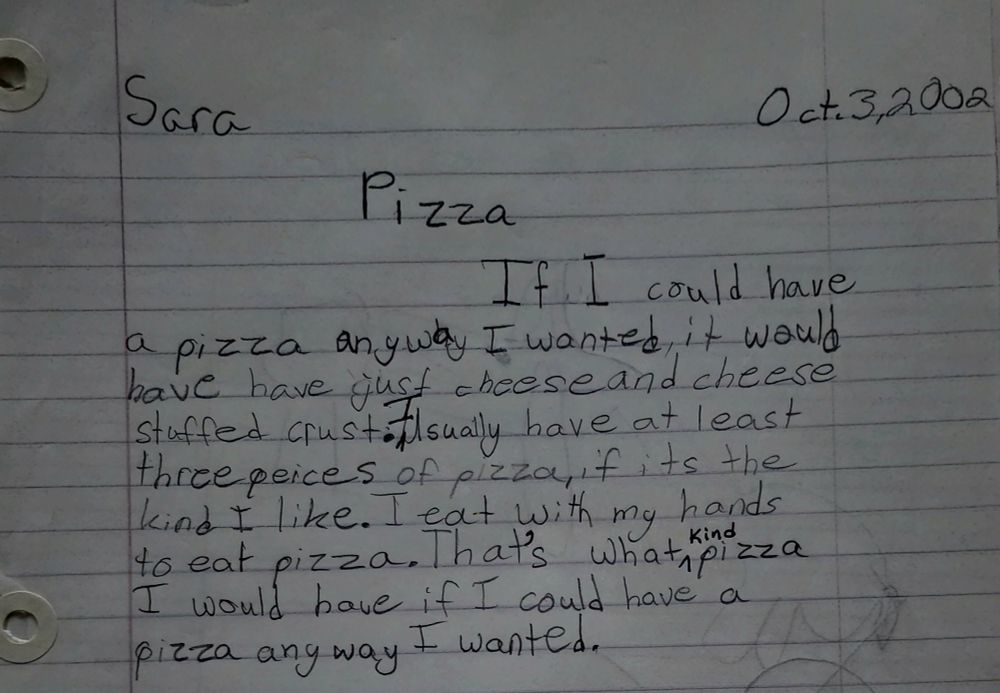 Sara Oct. 3, 2002
Pizza
If I could have
a pizza anyway I wanted, it would
have have just cheese and cheese
stuffed crust. I usually have at least
three peices of pizza, if its the
kind I like. I eat with my hands
to eat pizza. That's what kind pizza
I would have if I could have a
pizza anyway I wanted.